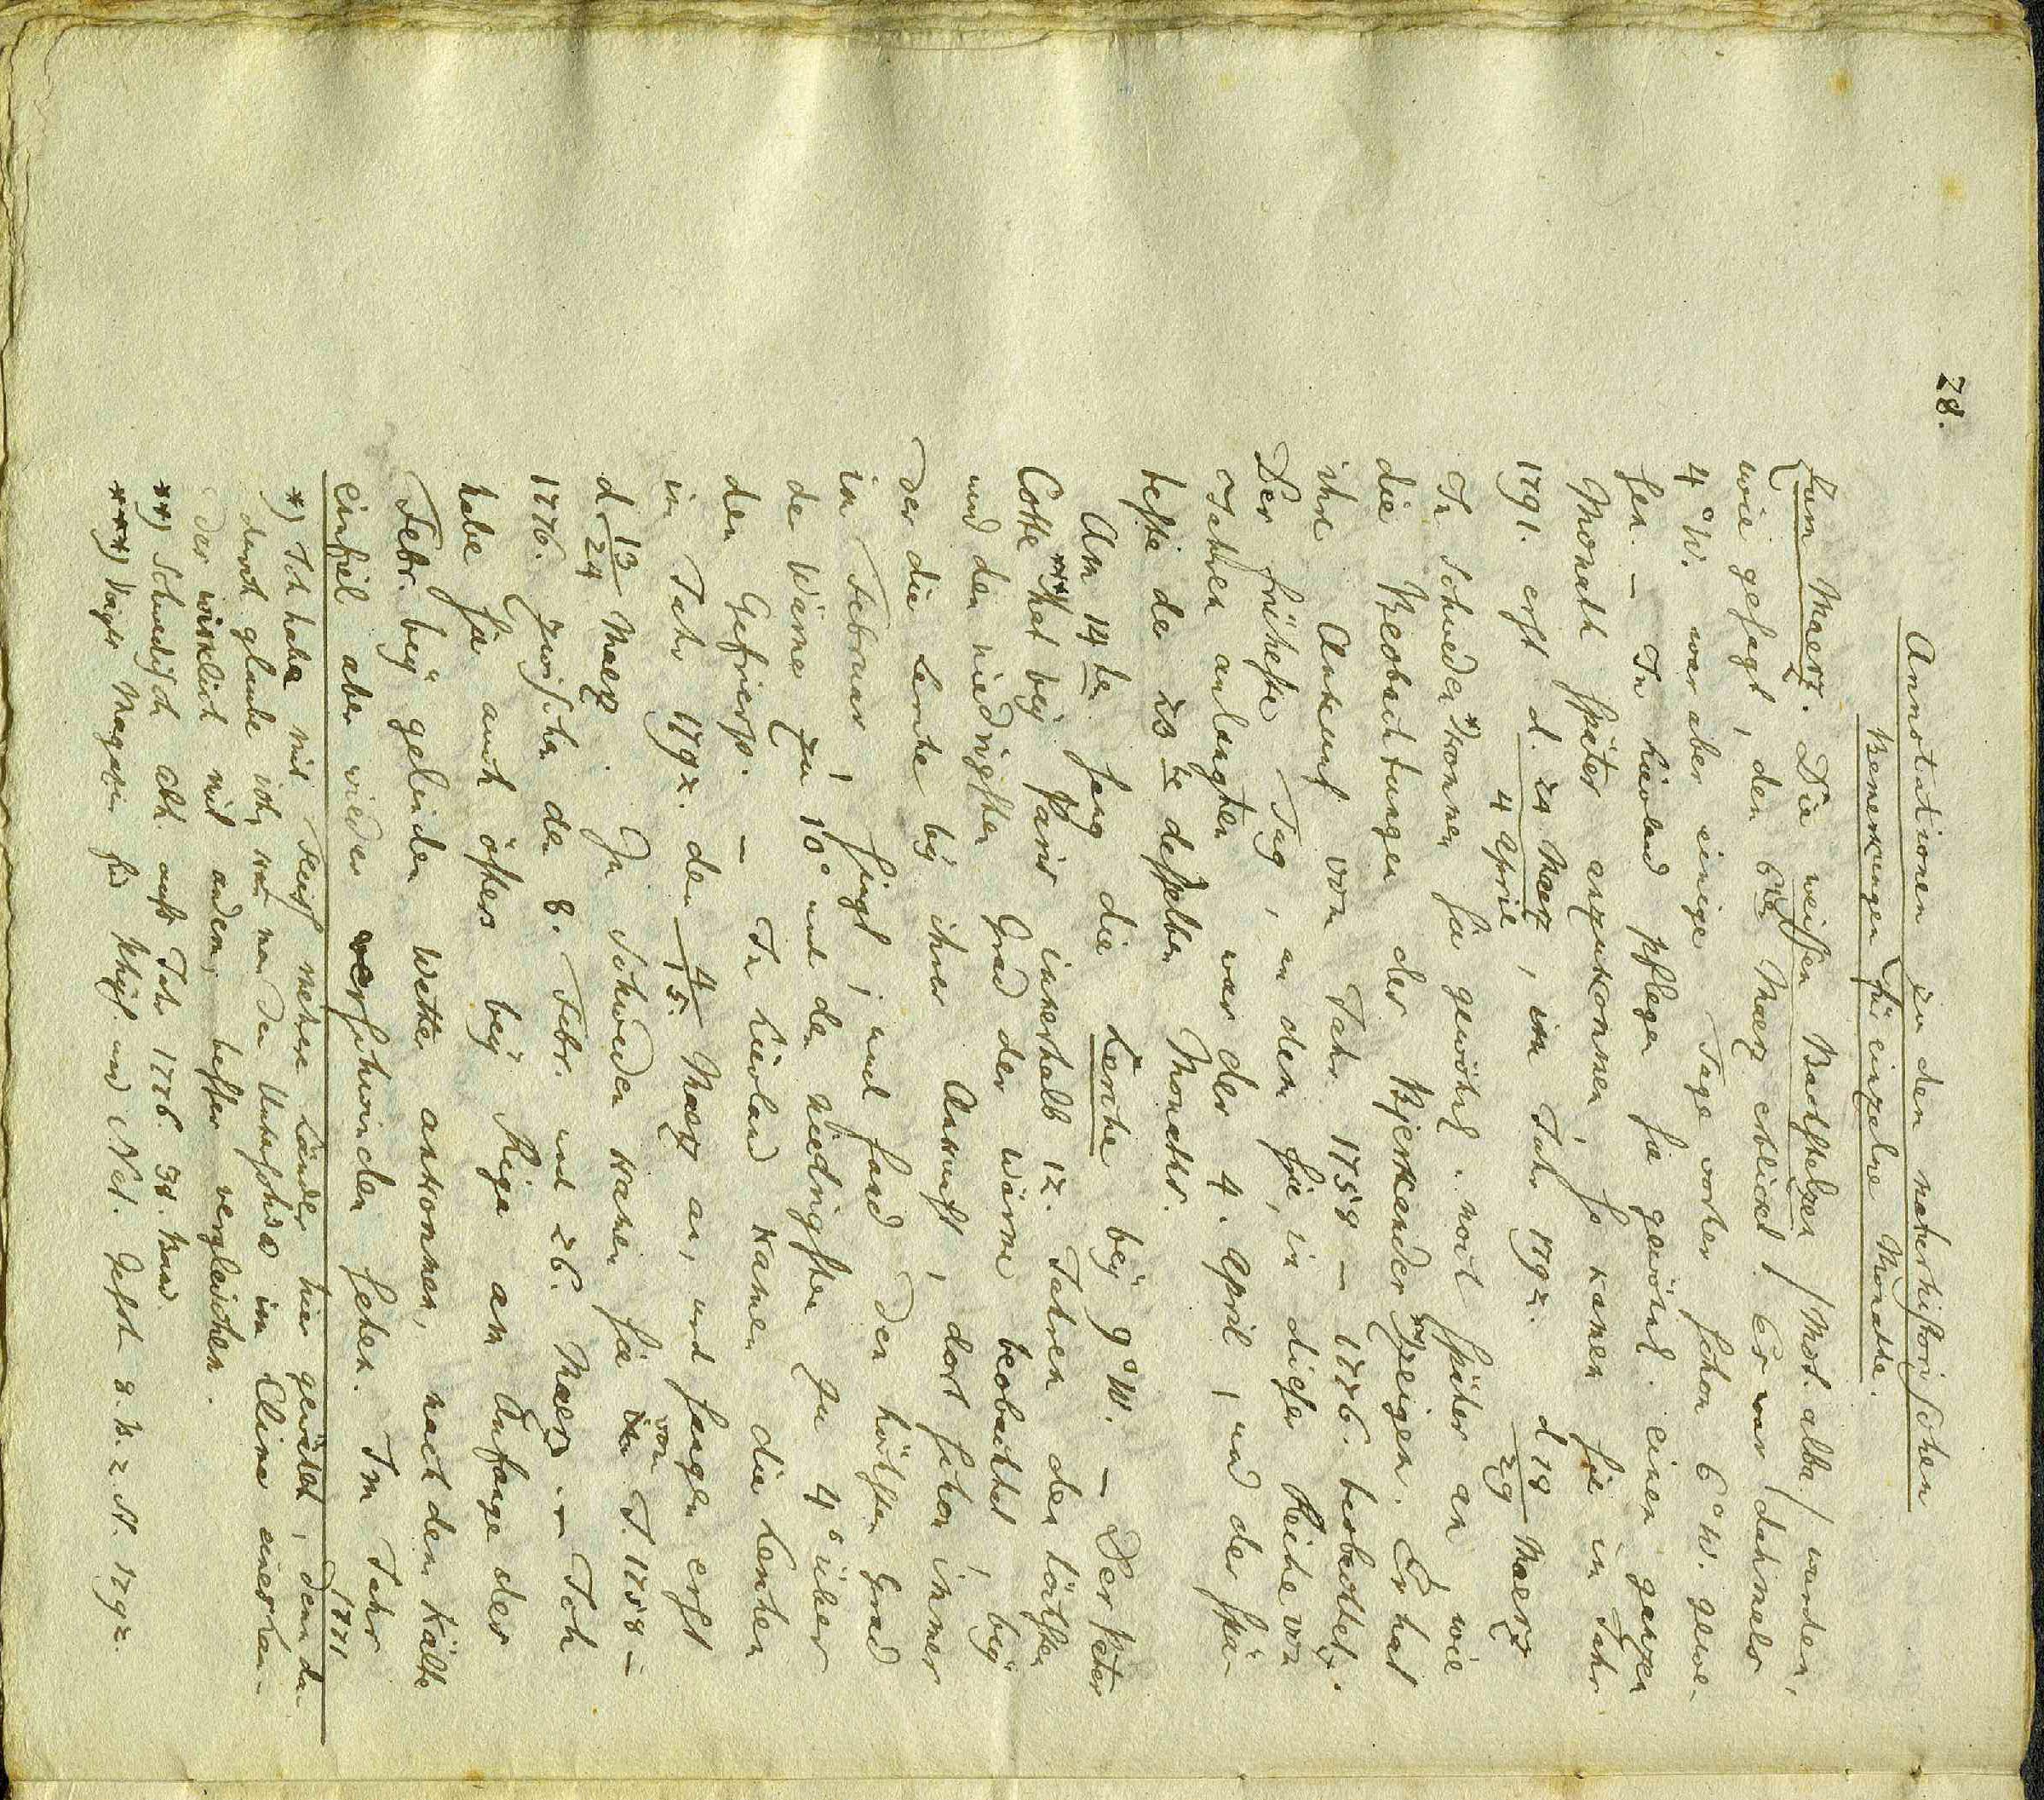 28.
Annotationen zu den naturhistorischen
Bemerkungen für einzelne Monathe.
Zum Maerz. Die weissen Bachstelzen /: Mot. alba :/ wurden,
wie gesagt, den 6ten Maerz erblickt. Es war dahmals
4°W. war aber einige Tage vorher schon 6°W. gewe-
sen. – In Liwland pflegen sie gewöhnl. einen ganzen
Monath später anzukommen, so kamen sie im Jahr
1791. erst d. 24 Maerz / 4 April, im Jahr 1792. d 18 / 29 Maerz
In Schweden *) kommen sie gewöhnl. noch später an wie
die Beobachtungen der Bjerkander **) zeigen. Er hat
ihre Ankunft von Jahr 1758 – 1776. beobachtet.
Der früheste Tag, an dem sie, in dieser Reihe von
Jahren anlangten war der 4. April, und der spä-
teste der 23te desselben Monaths.
Am 14te. sang die Lerche bey 9°W. – Der Peter
Cotte ***) hat bey Paris innerhalb 12. Jahren den höchsten
und den niedrigsten Grad der Wärme beobachtet, bey
der die Lerche bey ihrer Ankunft, dort schon immer
im Februar, singt, und fand den höchsten Grad
der Wärme zu 10° und den niedrigsten zu 4° über
den Gefrierp. – In Liwland kamen die Lerchen
im Jahr 1792. den 4 / 15. Maerz an, und sangen erst
d. 13 / 24 Maerz. In Schweden kamen sie von J. 1758 –
1776. zwischen den 8. Febr. und 26. Maerz an. Ich
habe sie auch öfters bey Riga am Anfange des
Febr. bey gelinden Wetter ankommen, nach dem Kälte
einfiel aber wieder verschwinden sehen. Im Jahr
1771
*) Ich habe mit Fleiss mehrere Länder hier gewählt, denn da-
durch glaube ich, kan man den Unterschied im Clima eines Lan-
des wirklich mit andern, besser vergleichen.
**) Schwedisch Abh. aufs Jahr 1776. 38. Band.
***) Voigts Magazin für Phys. und Nat. Gesch 8. B. 2. St. 1792.